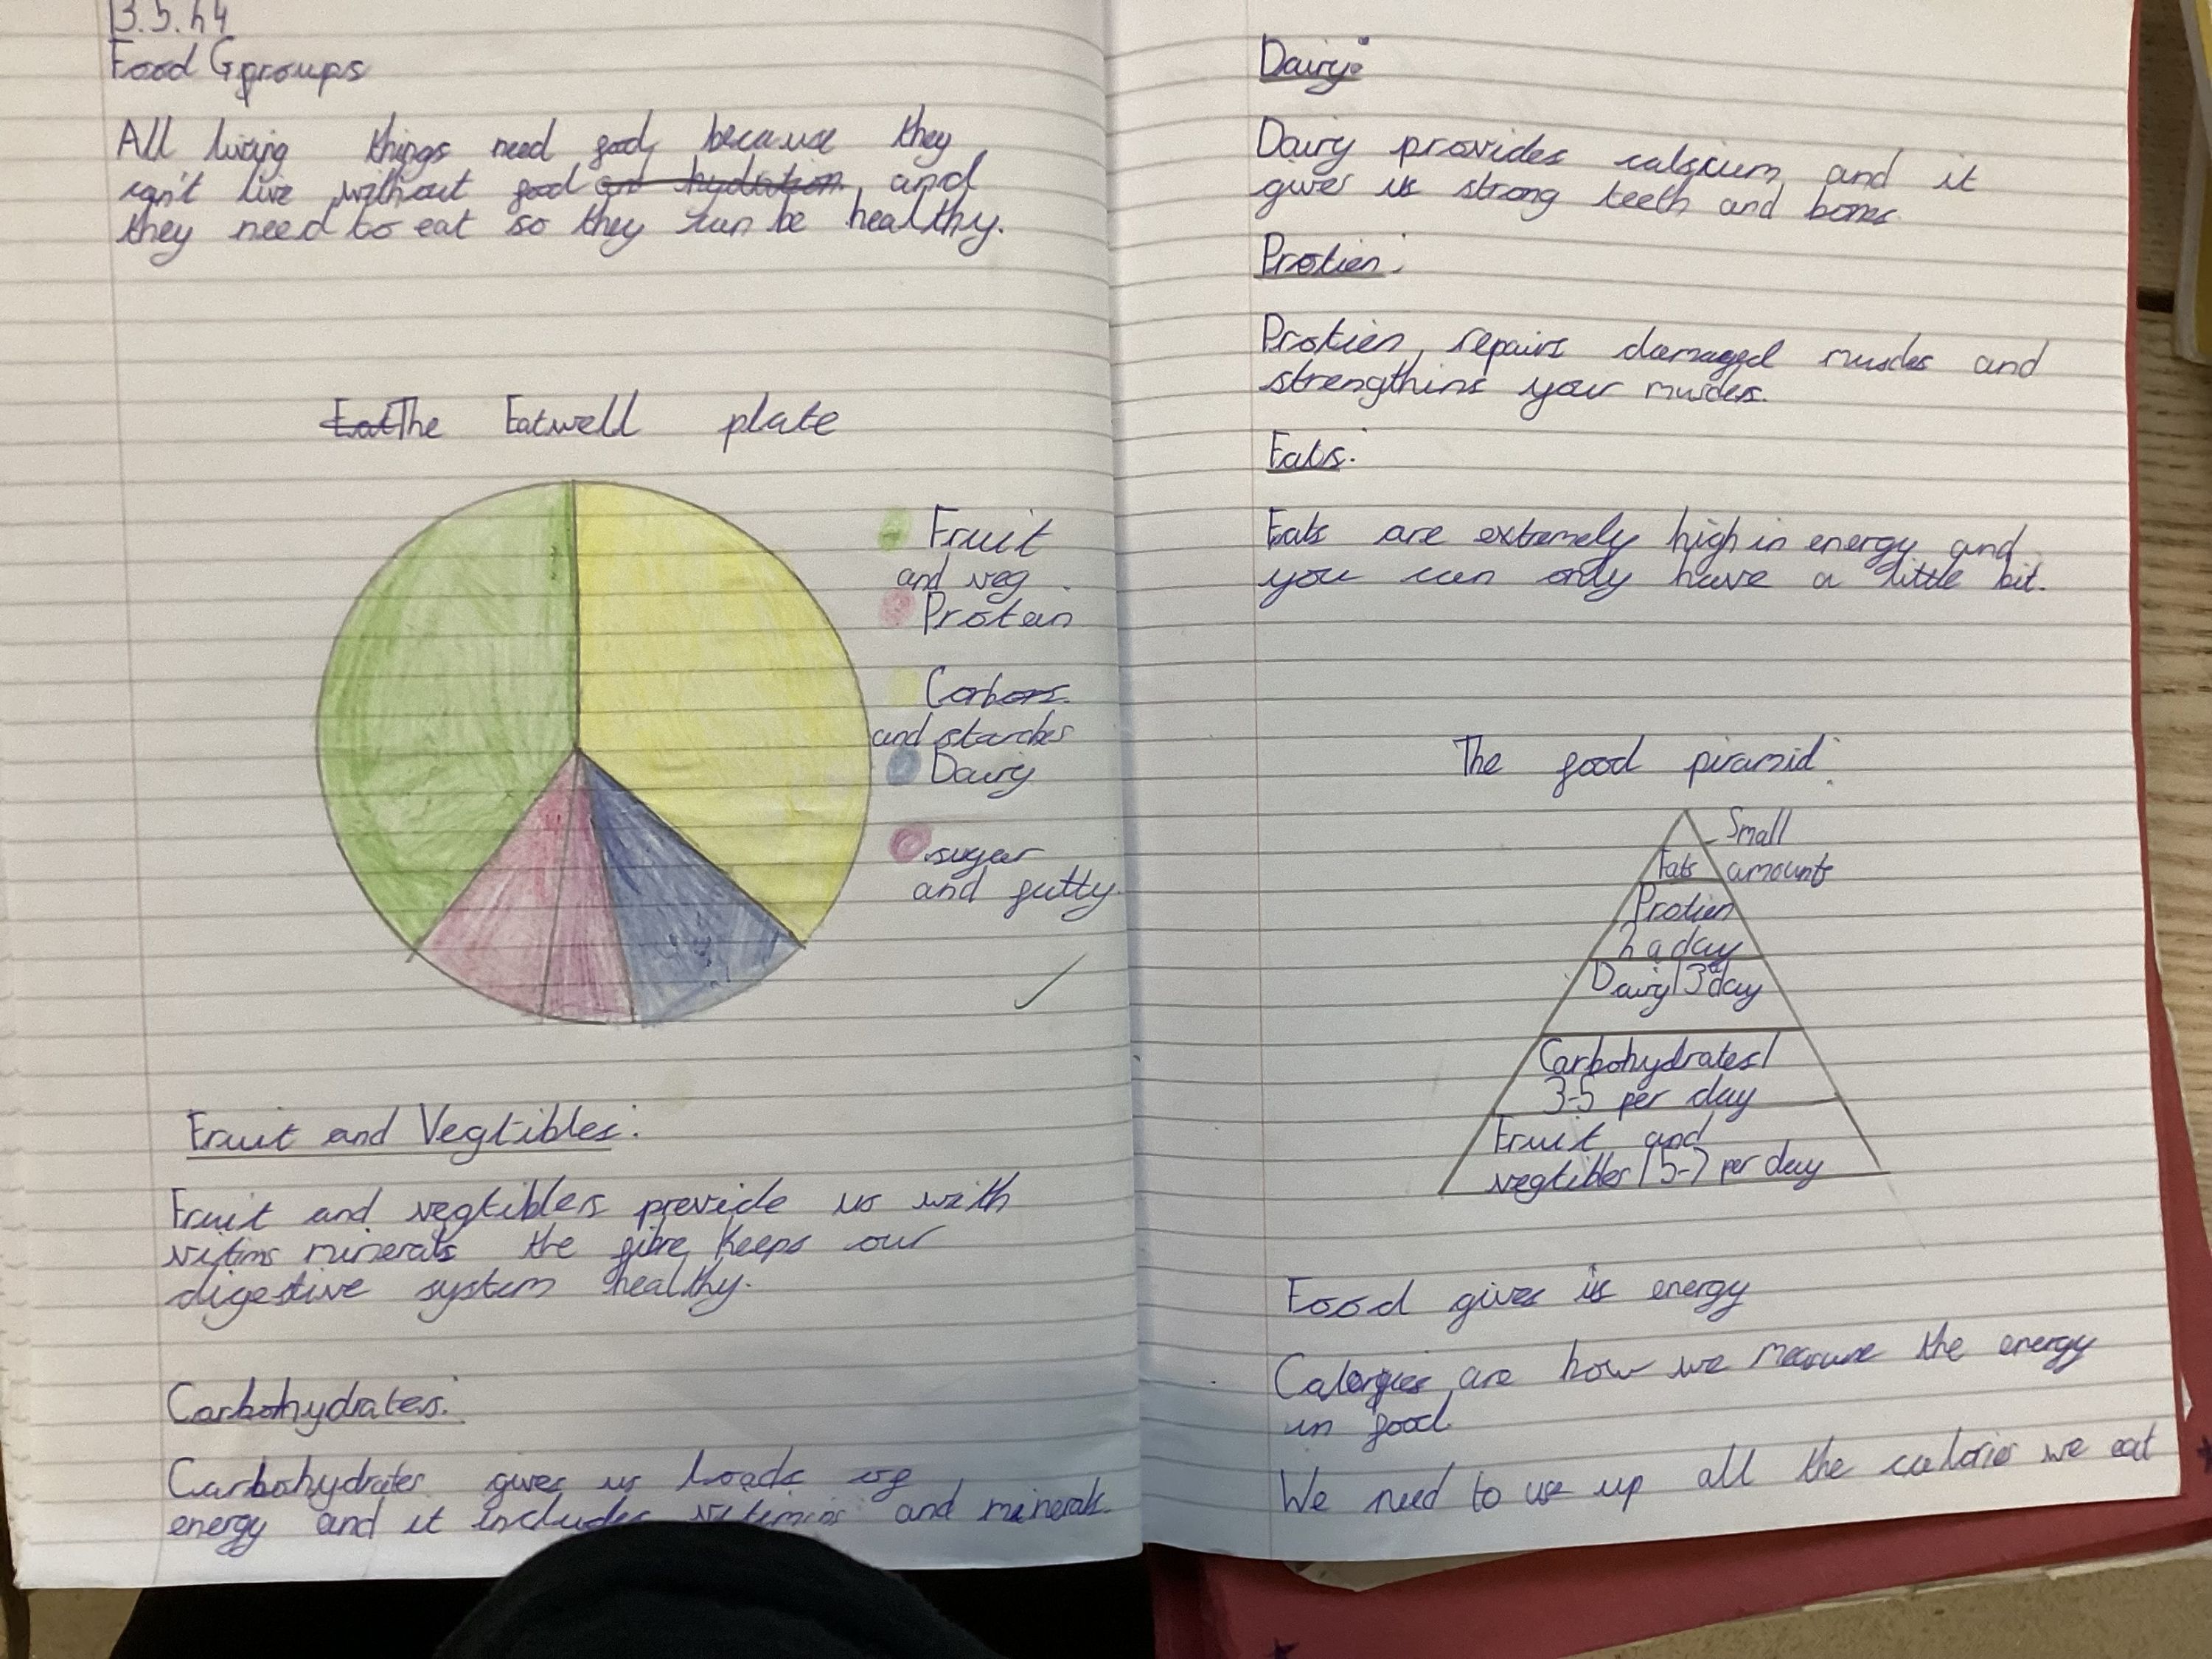 13.5.24
Food Gproups
All living things need food, because they
can't live without food and hydration, and
they need to eat so they can be healthy.
EatThe Eatwell plate
Fruit
and veg
Protein
Carbons
and starches
Dairy
sugar
and futty
Fruit and Vegtibles:
Fruit and vegtibles previde us with
vitims minerals the fibre keeps our
digestive system healthy.
Carbohydrates:
Carbohydrates gives us loads of
energy and it includes vitimins and minerals.
Dairy:
Dairy provides calscium and it
gives us strong teeth and bones
Protien:
Protien, repairs damaged muscles and
strengthins your muscles.
Fats:
Fats are extremely high in energy and
you can only have a little bit.
The food piramid:
Small
amounts
Fats
Protien
2 a day
Dairy/3 a day
Carbohydrates/
3-5 per day
Fruit and
vegtibles/5-7 per day
Food gives is energy
Calorgies are how we measure the energy
in food
We need to use up all the calories we eat